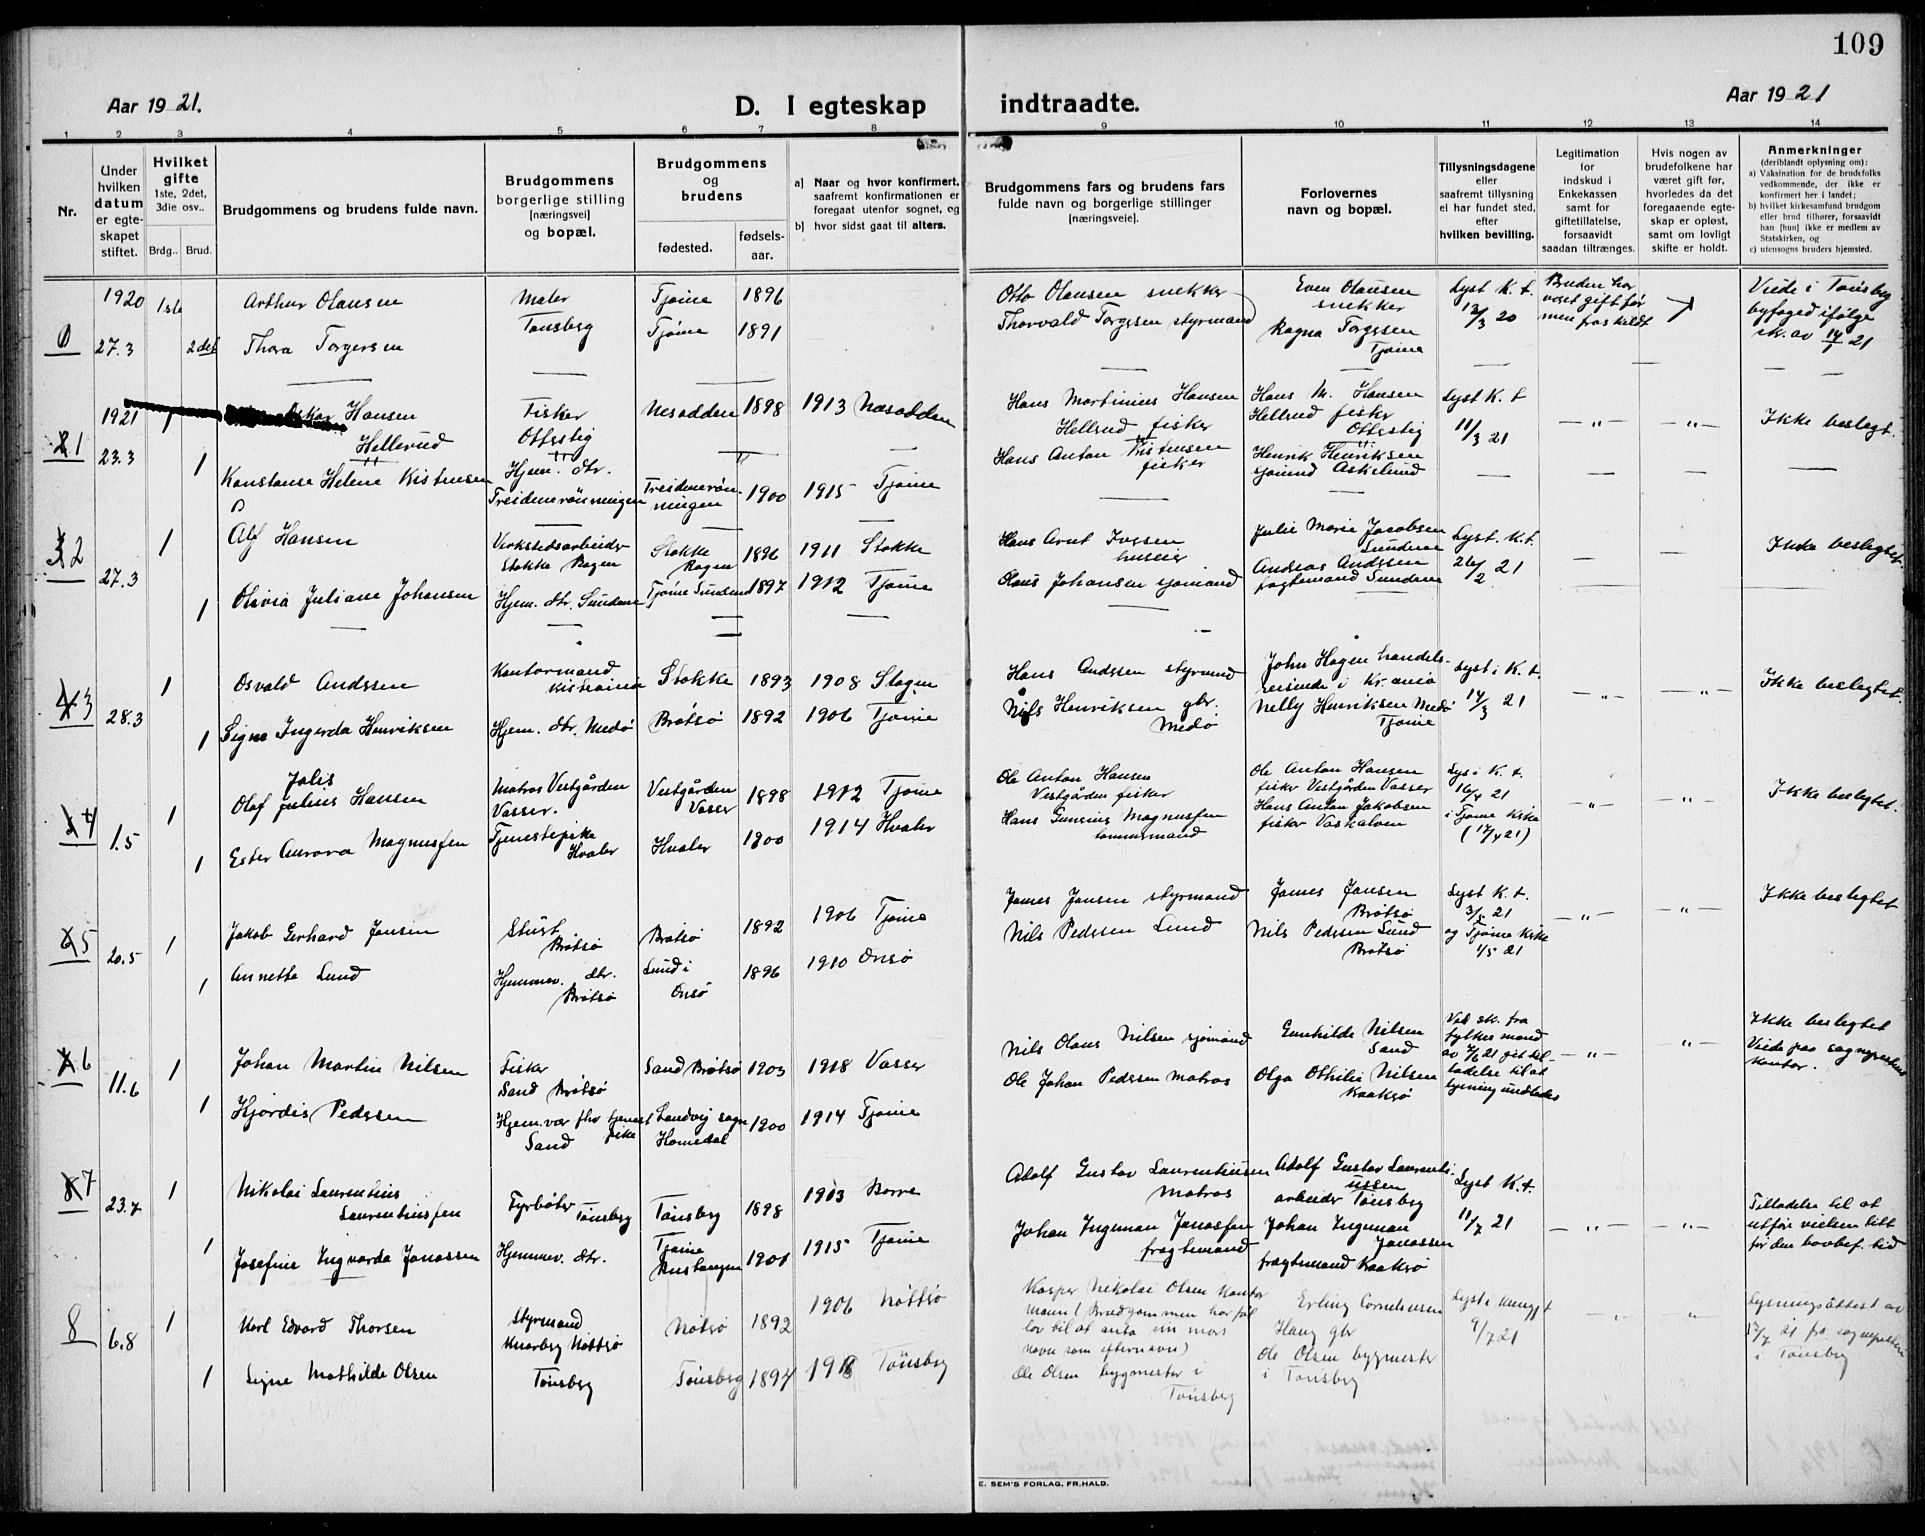 109
Aar 1921.
D. I egteskap indtraadte.
Aar 1921
1 2 3 4 5 6 7 8 9 10 11 12 13 14
Nr.
Under hvilken datum er egte-skapet stiftet.
Hvilket gifte
1ste, 2det, 3die osv..
Brdg.. Brud.
Brudgommens og brudens fulde navn.
Brudgommens borgerlige stilling [næringsvei] og bopæl.
Brudgommens og brudens
fødested.
fødsels-aar.
a) Naar og hvor konfirmert, saafremt konfirmationen er foregaat utenfor sognet, og
b) hvor sidst gaat til alters.
Brudgommens fars og brudens fars fulde navn og borgerlige stillinger [næringsveie].
Forlovernes navn og bopæl.
Tillysningsdagene eller saafremt tillysning ei har fundet sted, efter hvilken bevilling.
Legitimation for indskud i Enkekassen samt for giftetillatelse, forsaavidt saadan tiltrænges.
Hvis nogen av brudefolkene har været gift før, hvorledes da det foregaaende egte-skap er opløst, samt om lovligt skifte er holdt.
Anmerkninger
(deriblandt oplysning om):
a) Vaksination for de brudefolks vedkommende, der ikke er konfirmert her i landet;
b) hvilket kirkesamfund brudgom eller brud tilhører, forsaavidt han [hun] ikke er medlem av Statskirken, og
c) utensogns bruders hjemsted.
0 1920 27.3 1ste Arthur Olausen Maler Tønsberg Tjøme 1896
2det Thora Torgersen Tjøme 1891
Otto Olausen snekker
Thorvald Torgesen styrmand
Even Olausen snekker
Ragna Torgesen Tjøme
Lyst K. t. 12/3 20
Bruden har vært gift før men fraskildt
Viede i Tønsberg byfoged ifølge sk. av 14/1 21
1 1921 23.3 1 Oskar Hansen Hellerud Fisker Nesodden 1898 1913 Nesodden
1 Konstanse Helene Kistensen Hjem. dtr. Treidenerønningen Treidenerønningen 1900 1915 Tjøme
Hans Martinius Hansen Hellrud fisker
Hans Anton Kristensen fisker
Hans M. Hansen Hellrud fisker
Henrik Henriksen sjømnd Askelund
Lyst K. t 11/3 21
- " - - " - Ikke beslegt.
2 27.3 1 Alf Hansen Verkstedsarbeider Stokke Bogen Stokke Bogen 1896 1911 Stokke
1 Olivia Juliane Johansen Hjem. dtr. Sundene Tjøme Sundene 1897 1912 Tjøme
Hans Arnt Ivessen huseier
Olaus Johansen sjømand
Julie Marie Jacobsen Sundene
Andreas Andssen fragtemand Sundene
Lyst. K.t. 26/2 21
Ikke beslegtet.
3 28.3 1 Osvald Andssen Kontormand Kristiania Stokke 1893 1908 Slagen
1 Signe Ingerda Henriksen Hjem. dtr. Medø Brøtsø 1892 1906 Tjøme
Hans Andssen styrmnd
Nils Henriksen gbr. Medø
John Hagen handels-reisende i Kr.ania
Nelly Henriksen Medø Tjøme
Lyst i K. t. 14/3 21
- " - - " - Ikke beslegtet.
4 1.5 1 Olaf Julius Hansen Matros Vestgården Vasser. Vestgården Vasser 1898 1912 Tjøme
1 Ester Aurora Magnussen Tjenestepike Hvaler Hvaler 1900 1914 Hvaler
Ole Anton Hansen Vestgården fisker
Hans Gunnius Magnussen
Ole Anton Hansen fisker Vestgården Vasser
Hans Anton Jakobsen fisker
Lys i K. t. 16/4 21 i Tjøme Kirke (17/4 21)
- " - - " - Ikke beslegtet
5 20.5 1 Jakob Gerhard Jansen Stuert Brøtsø Brøtsø 1892 1906 Tjøme
1 Annette Lund Hjemmev. dtr. Brøtsø Lund i Onsø 1896 1910 Onsø
James Jansen styrmand
Nils Pedssen Lund
James Jansen Brøtsø
Nils Pedssen Lund Brøtsø
Lyst K. t. 3/5 21 og Tjøme Kirke 1/5 21
- " - - " - Ikke beslegtet
6 11.6 1 Johan Martin Nilsen Fisker Sand Brøtsø Sand Brøtsø 1903 1918 Vasser
1 Hjørdis Pedssen Sand Landvig sogn Homedal 1900 1914 Tjøme
Nils Olaus Nilsen sjømand
Ole Johan Pedssen matros
Gunhilde Nilsen Sand
Olga Othilie Nilsen Kaaksø
Ved sk. fra fylkesmand av 7/6 21 git til-ladelse til at lysning undlades
- " - - " - Ikke beslegtet Viede paa sogneprestens kontor.
7 23.7 1 Nikolai Laurentius Laurentiussen Fyrbøter Tønsberg Tønsberg 1898 1913 Borre
1 Josefine Ingvarda Jonassen Hjemmev. dtr. Tjøme 1901 1915 Tjøme
Adolf Gustav Laurentiussen Matros
Johan Ingeman Jonassen fragtemand
Adolf Gustav Laurenti-ussen arbeider Tønsberg
Johan Ingeman Jonassen fragtemand Kaaksø
Lyst K.t. 11/7 21
- " - - " - Tilladelse til at utføre vielsen litt før den lovbef. tid
8 6.8 1 Karl Edvard Thorsen Styrmand Knarberg Nøttrø Nøtrø 1892 1906 Nøttrø
1 Signe Mathilde Olsen Tønsberg Tønsberg 1897 Tønsberg
Kasper Nikolai Olsen Kontormann (Brudgommen har fåt lov til at anta sin mors navn som efternavn)
Ole Olsen bygmester i Tønsberg
Erling Corneliussen Haug gbr
Ole Olsen bygmester i Tønsberg
Lyst i 9/7 21
Lysningsattest av 17/7 21 fra sognepresten i Tønsberg
E. SEM'S FORLAG, FR.HALD.